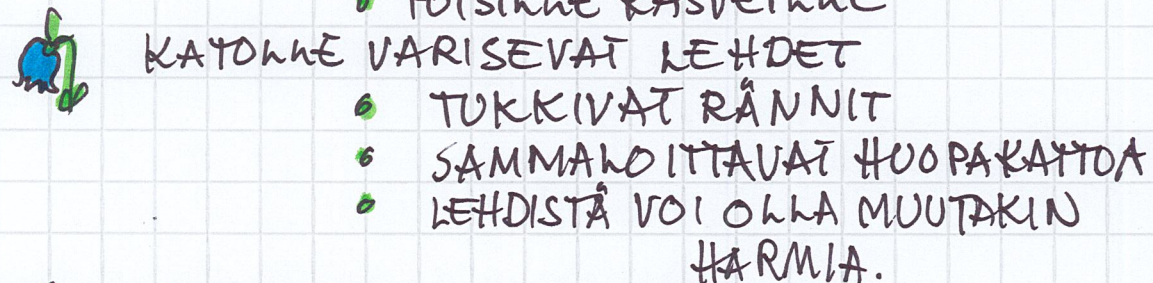 KATOLLE VARISEVAT LEHDET
TUKKIVAT RÄNNIT
SAMMALOITTAVAT HUOPAKATTOA
LEHDISTÄ VOI OLLA MUUTAKIN
HARMIA.